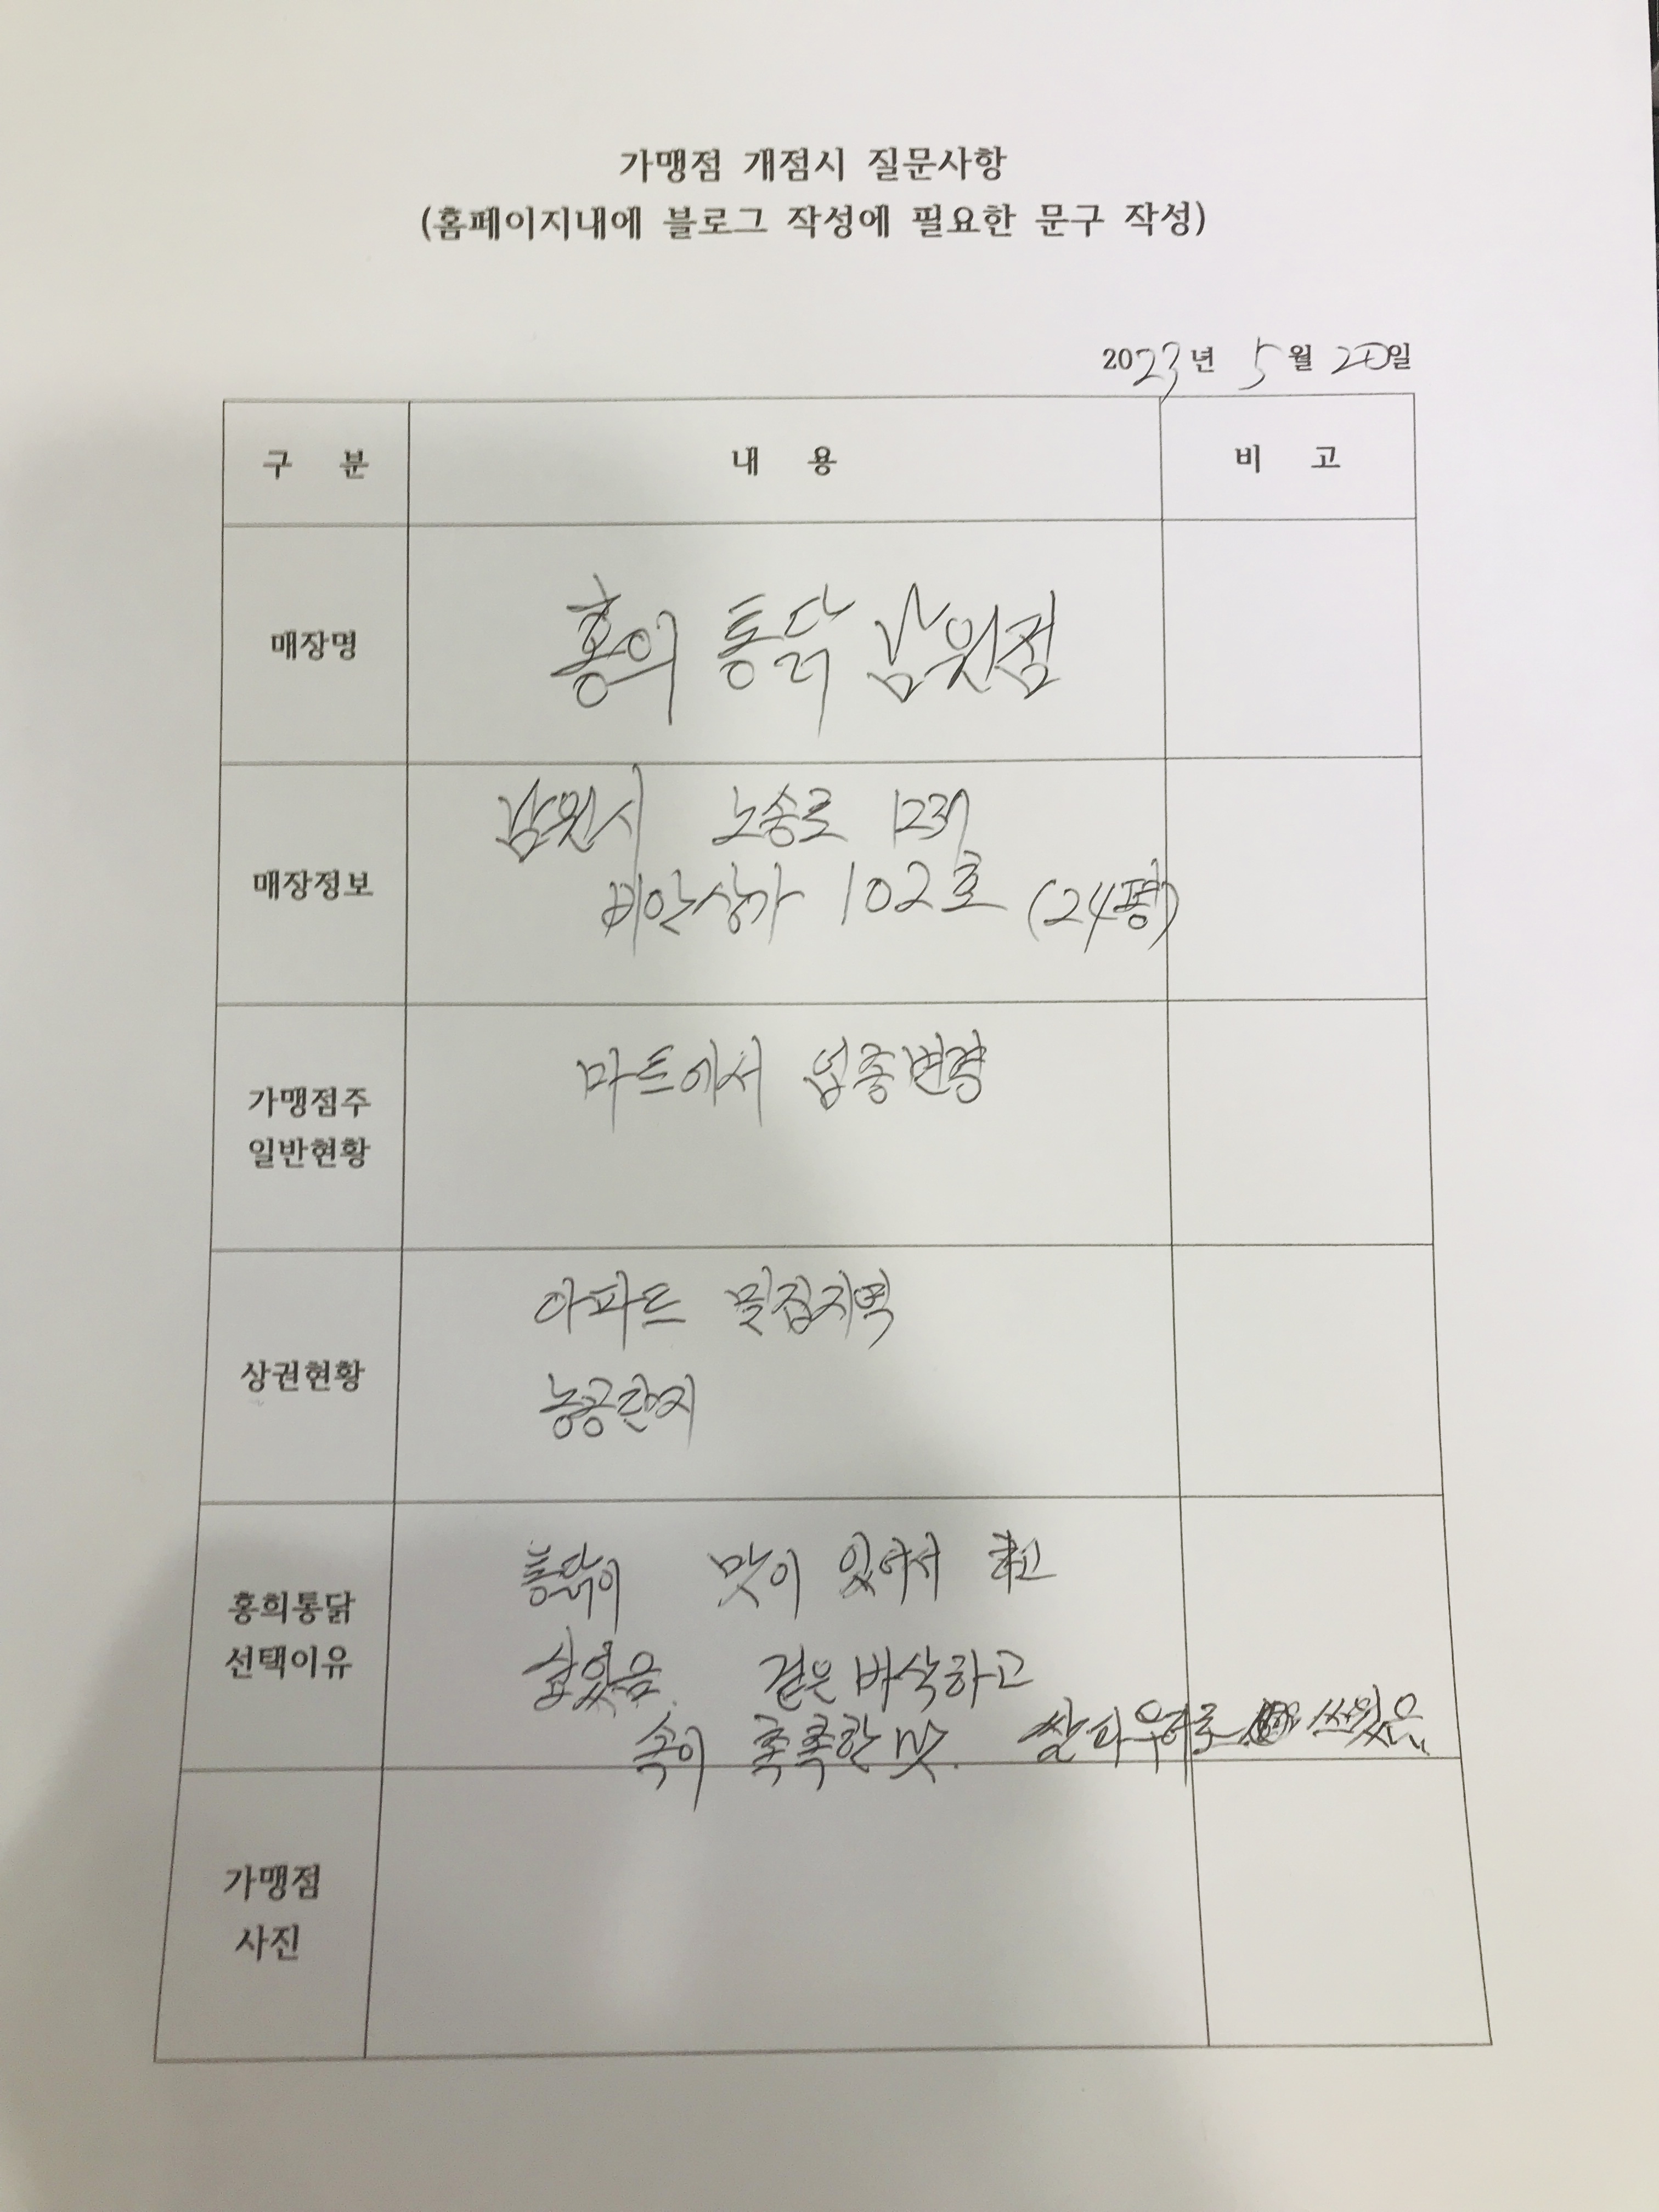 가맹점 개점시 질문사항
(홈페이지내에 블로그 작성에 필요한 문구 작성)
2023년 5월 20일
구 분 내 용 비 고
매장명 홍의 통닭 남원점
매장정보
남원시 노송로 1237
비안상가 102호 (24평)
가맹점주
일반현황
마트에서 업종변경
상권현황
아파트 밀집지역
농공단지
홍희통닭
선택이유
통닭이 맛이 있어서 하고
싶었음. 겉은 바삭하고
속이 촉촉한 맛. 쌀파우더로 쓰있음
가맹점
사진